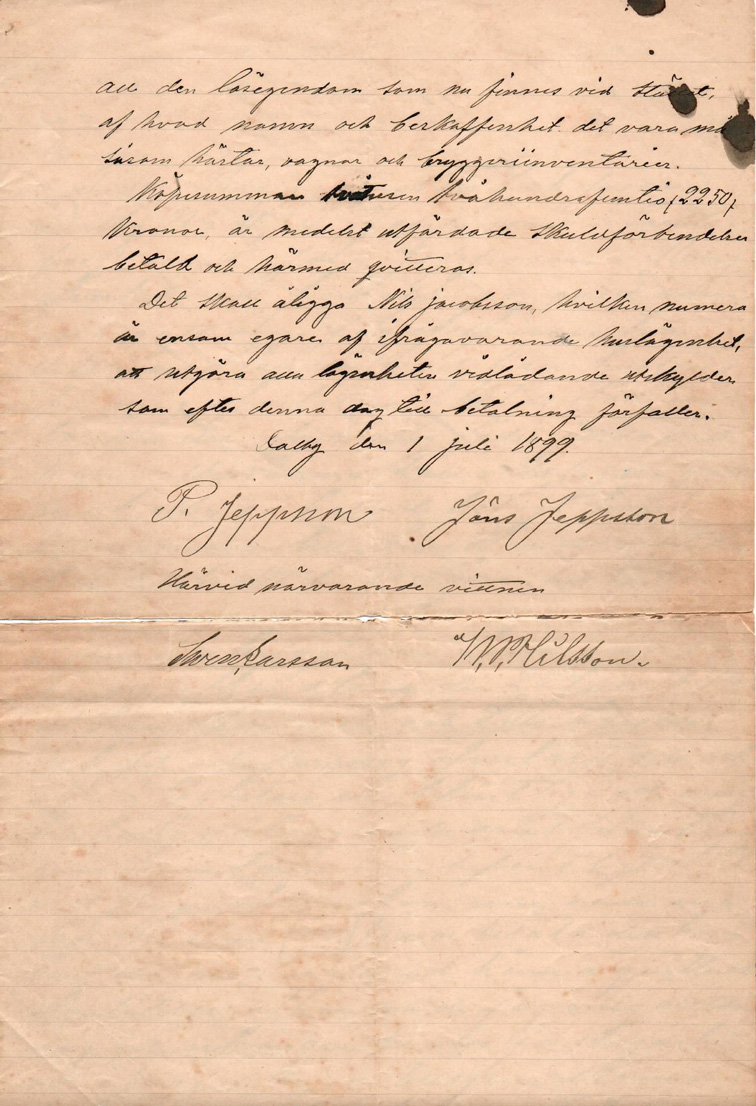 all den lösegendom som nu finnes vid
af hvad namn och beskaffenhet det vara må
såsom hästar, vagnar och bryggeriinventarier.
Köpesumman tvåtusen tvåhundrafemtio (2250)
Kronor, är medelst utfärdade skuldförbindelser
betald och härmed qvitteras.
Det skall åligga Nils Jacobsson, hvilken numera
är ensam egare af ifrågavarande huslägenhet,
att utgöra alla lägenheten vidlådande utskylder
som efter denna dag till betalning förfaller.
Dalby den 1 juli 1899.
P. Jeppsson Jöns Jeppsson
Härvid närvarande vittnen
Sven Larsson N. P. Nilsson.